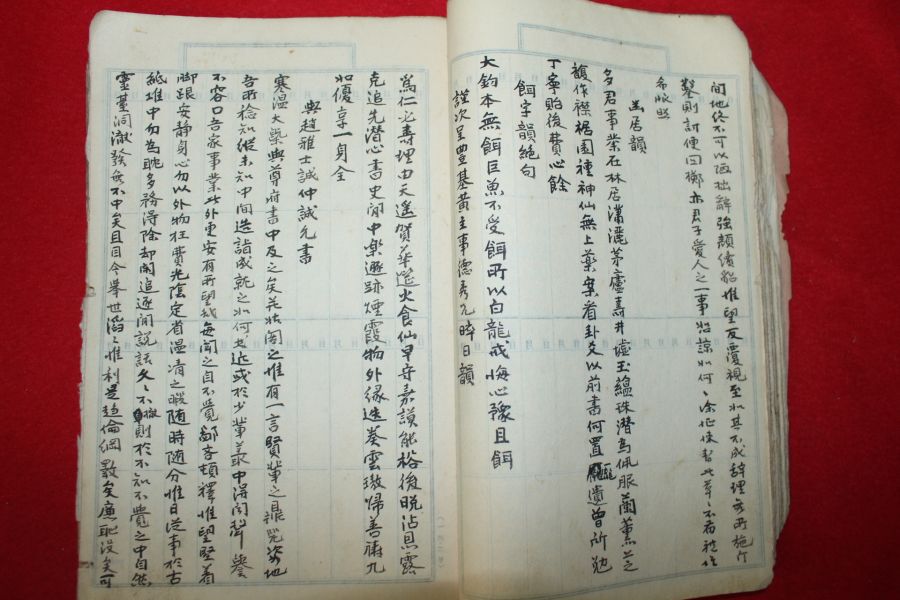 間地終不可以陋拙辭強顔續貂惟望反覆視至如其不成辭理無所施斤
鑿則討便回擲亦君子愛人之一事如諒如何〻餘忙悚暫此草〻不宣
希眽照
幽居韻
多君事業石林居瀟灑茅廬壽井墟玉蘊珠潛爲佩服蘭薰芝
馥作襟裾園種神仙無上藥案看卦爻以前書何置遺曾所勉
丁寧貽後費心餘
餌字韻絶句
大釣本無餌巨魚不受餌所以白龍戒悔心豫且餌
謹次呈豊基黄主事德秀九晬日韻
爲仁必壽理由天遥賀華筵火食仙早守嘉謨能裕後晩沾恩露
克追先潛心書史閒中樂遯跡煙霞物外緣迭奏雲璈歸善禱九
如優享一身全
與趙雅士誠仲誠允書
寒温大槩與尊府書中及之矣若壯閣之惟有一言賢輩之競爽姿地
吾所稔知從未知中間造詣成就之如何近或於少輩叢中得聞聲譽
不容口吾家事業此外更安有所望哉每聞之自不覺鄙吝頓釋惟望堅着
脚跟安靜身心勿以外物枉費光陰定省温凊之暇隨時隨分惟日從事於古
紙堆中勿爲耽多務得除却閒追逐閒說話久〻不撤則於不知不覺之中自然
靈臺洞澈發無不中矣且目今擧世滔〻惟利是趨倫綱斁矣廉恥沒矣可